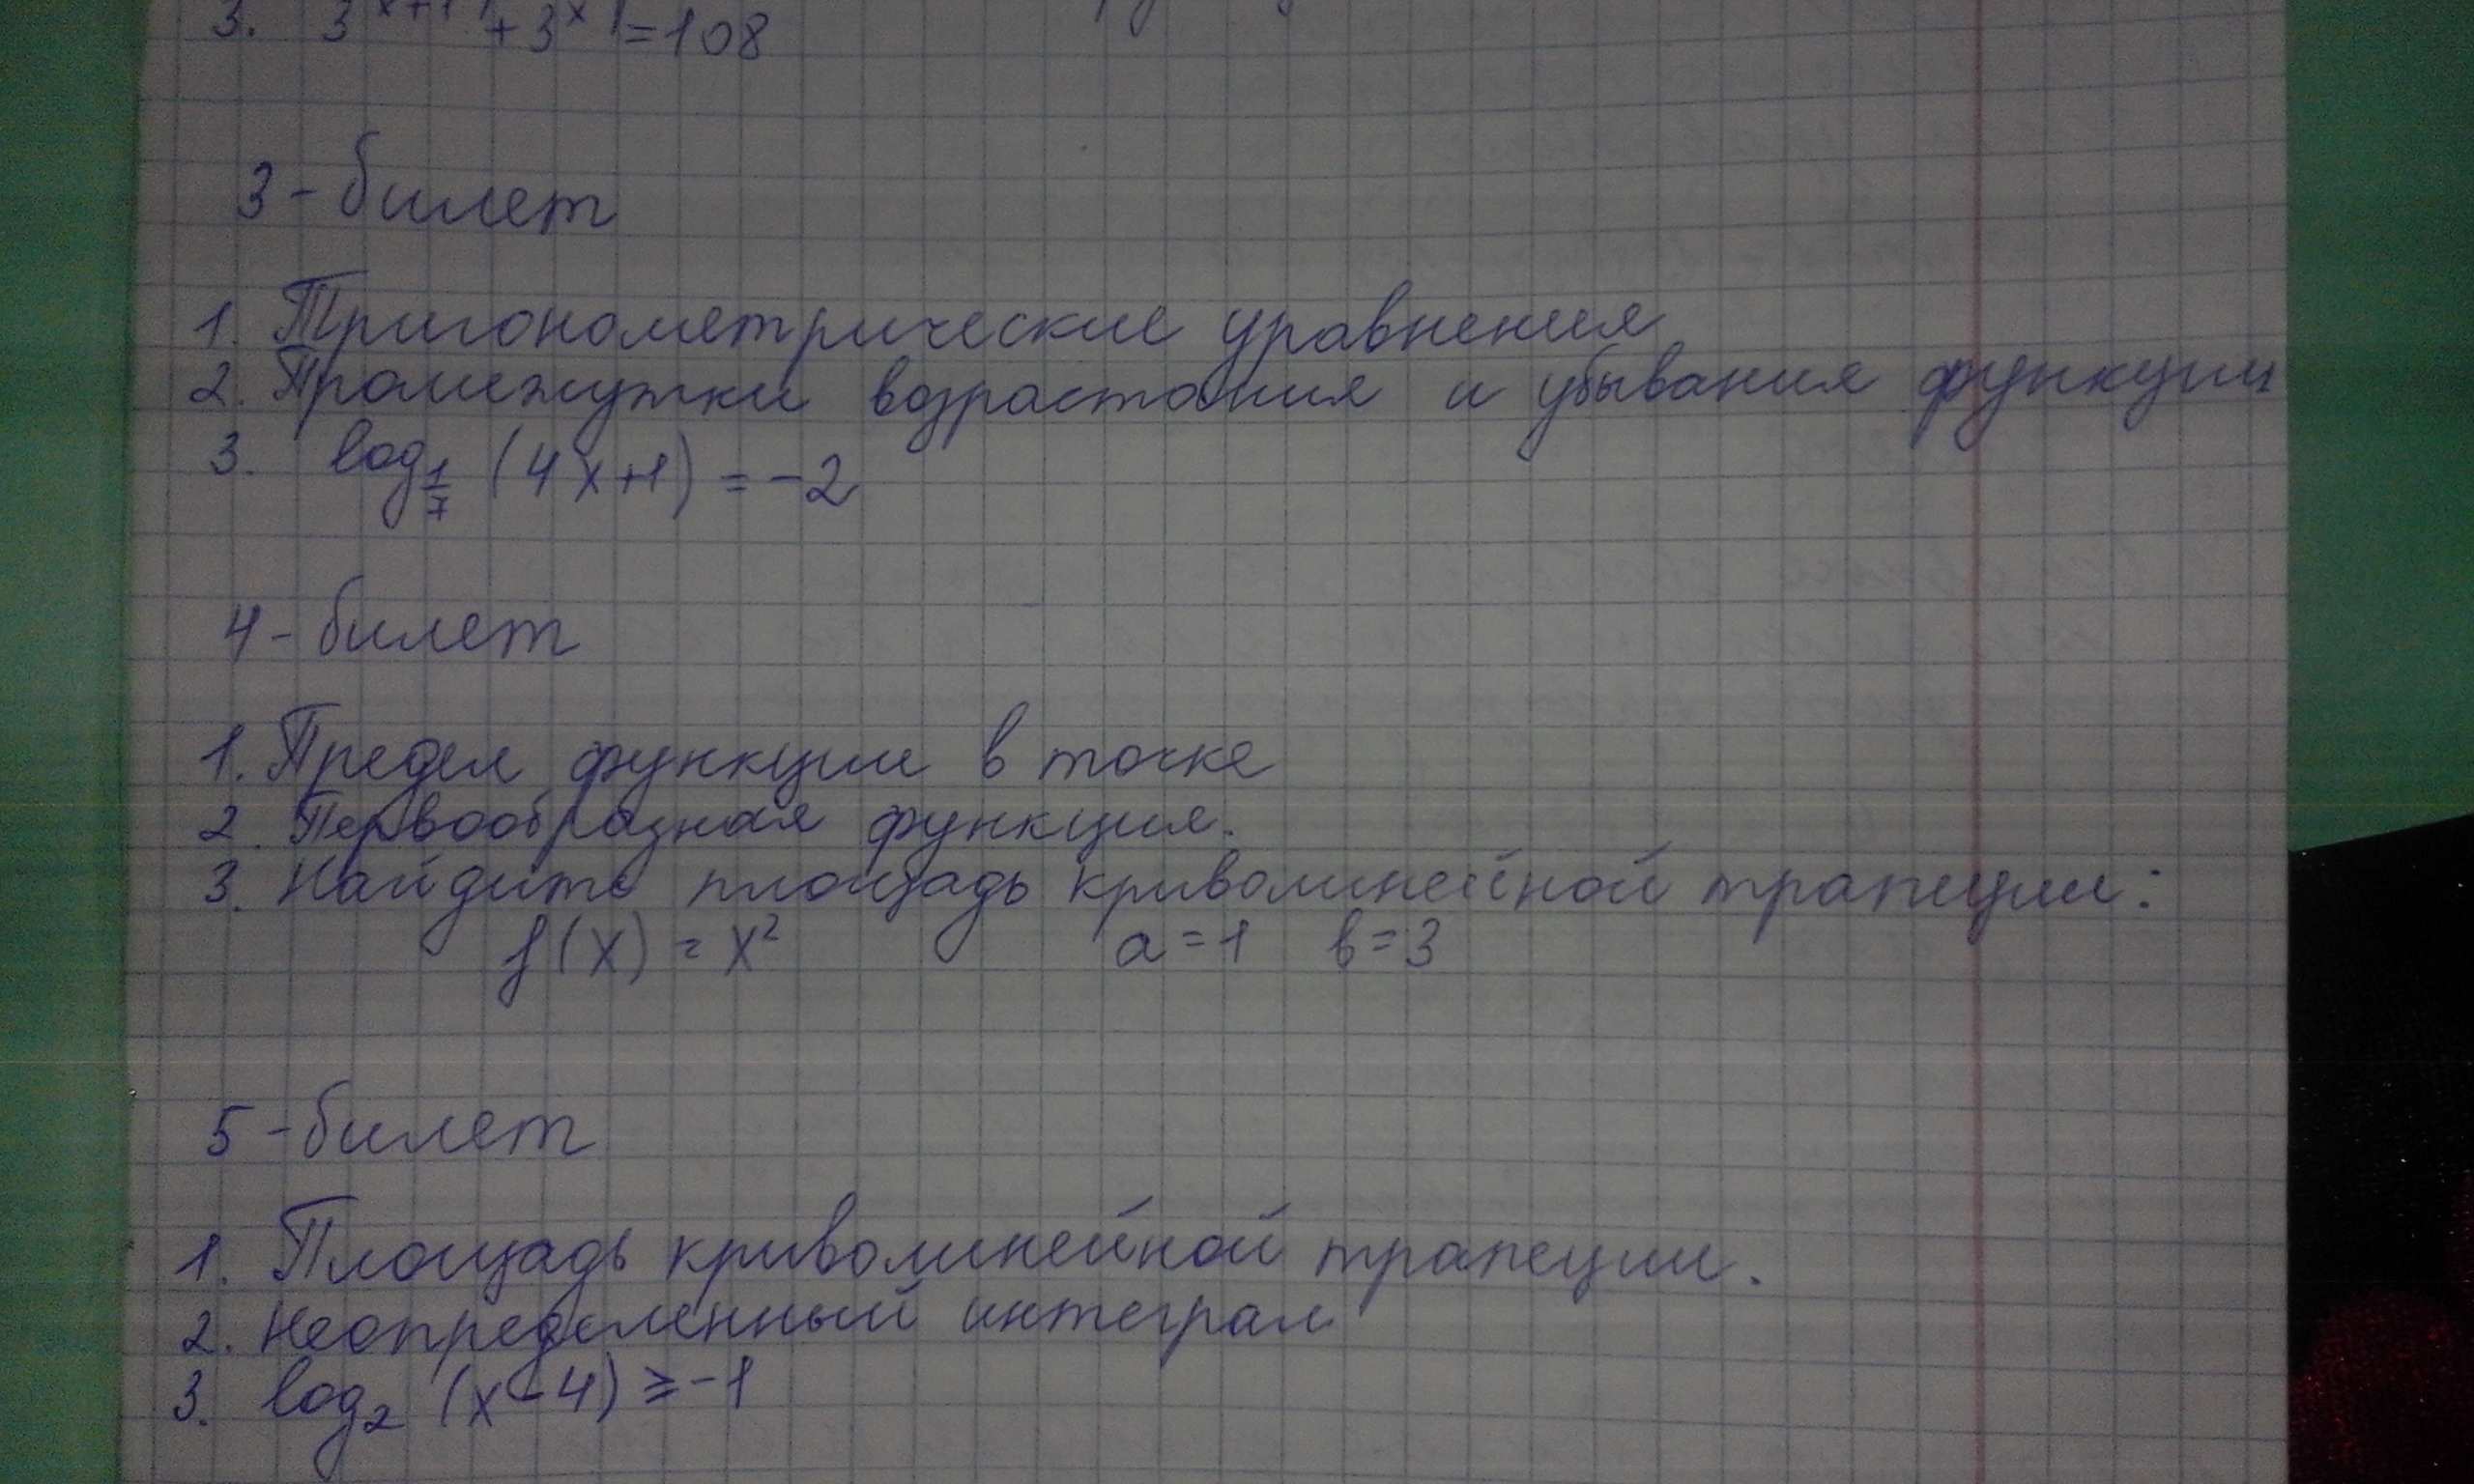 3. 3^x+1 + 3^x = 108
3 - билет
1. Тригонометрические уравнения
2. Промежутки возрастания и убывания функции
3. log_1/7 (4x+1) = -2
4 - билет
1. Предел функции в точке
2. Первообразная функция.
3. Найдите площадь криволинейной трапеции:
f(x) = x² a=1 b=3
5 - билет
1. Площадь криволинейной трапеции.
2. Неопределенный интеграл
3. log₂ (x-4) ≥ -1